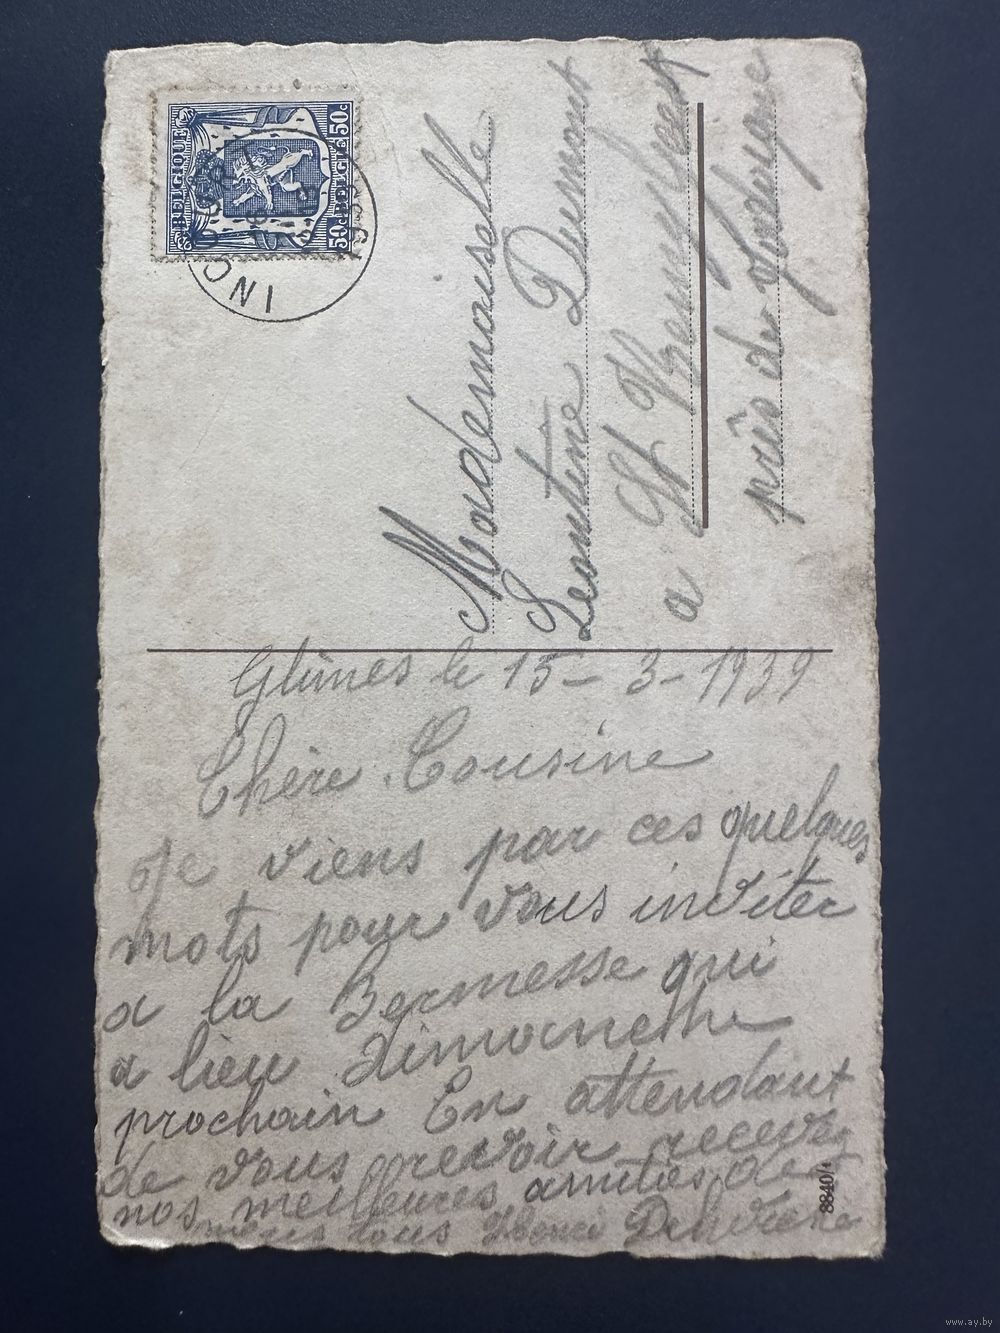 BELGIQUE
50c
50c BELGIE
INCO
Mademoiselle
Leontine Dumont
a St
près de
Glimes le 15-3-1939
Chère Cousine
Je viens par ces quelques
mots pour vous inviter
a la Kermesse qui
a lieu dimanche
prochain En attendant
de vous revoir recevez
nos meilleures amitiés de
nous tous
8840/4
www.ay.by